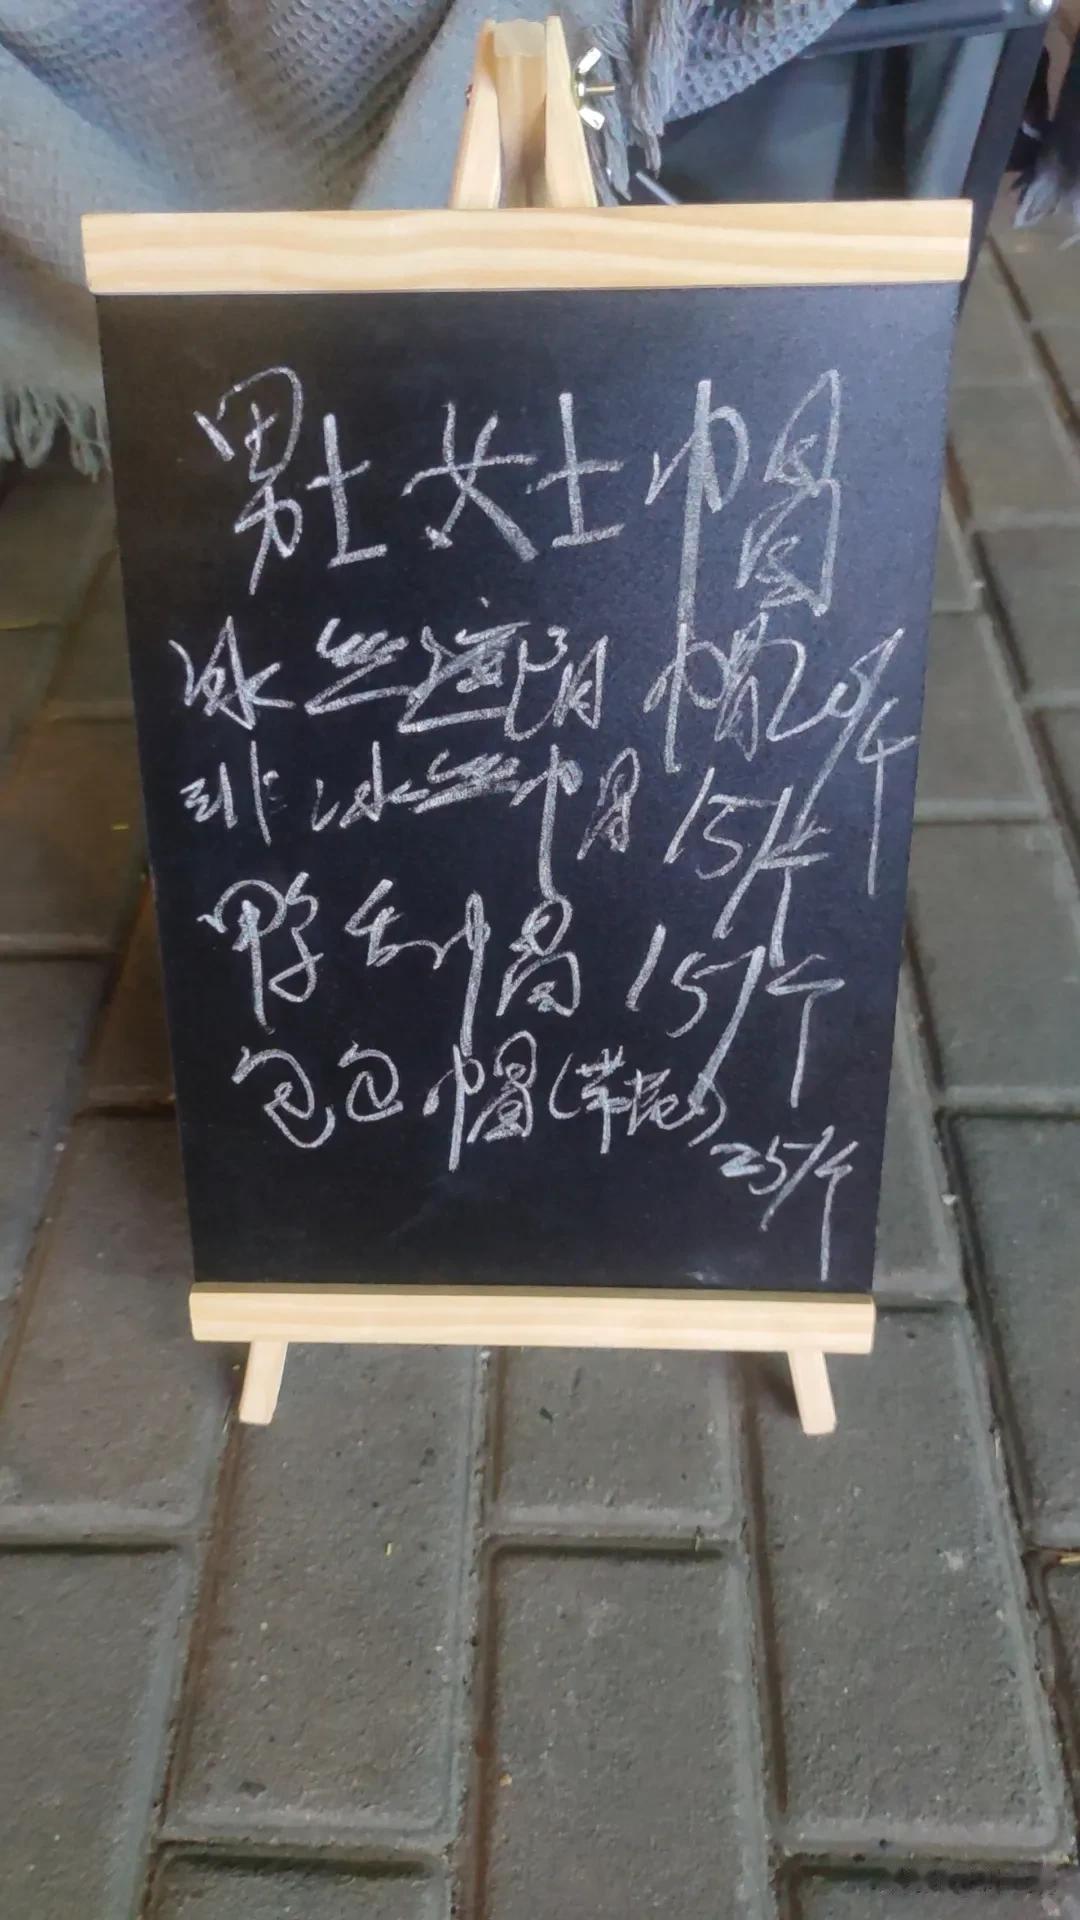 男士女士帽
冰丝遮阳帽20/个
非冰丝帽15/个
鸭舌帽15/个
包包帽(带花)
25/个